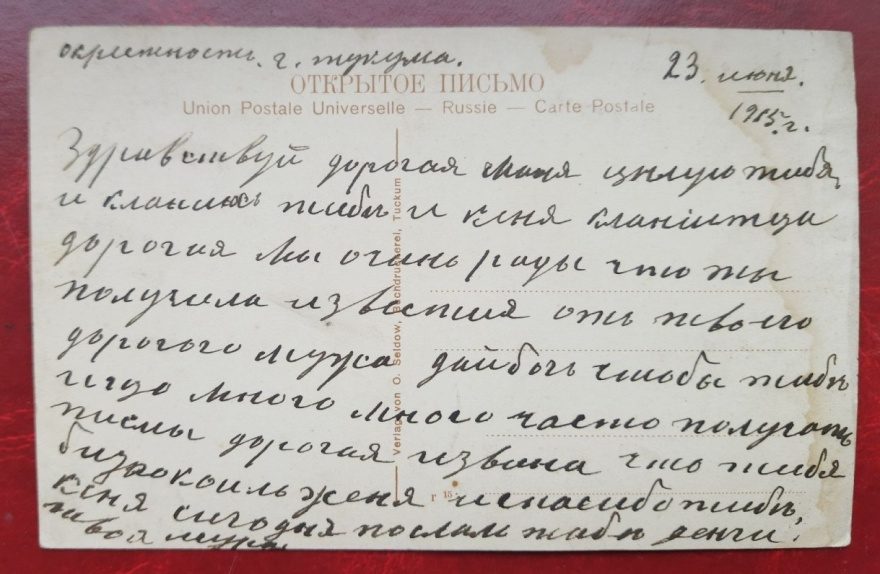 окресность. г. тукума.
23. июня.
1915. г.
ОТКРЫТОЕ ПИСЬМО
Union Postale Universelle — Russie — Carte Postale
Здравствуй дорогая цнлую тибя
и кланиюсь тибѣ и ксня кланіитца
дорогая мы очинь рады что ты
получила известия отъ твоего
дорогого мужа дай богъ чтобы тибѣ
много много часто получать
письмы дорогая извена что тибя
женя и спасибо тибѣ
ксня сигодня послам тибѣ денги.
твоя
Verlag von O. Seldow, Buchdruckerei, Tuckum